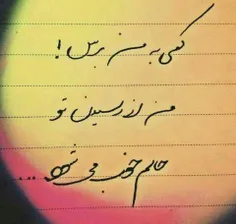 کمی به من برس !
من از رسیدن تو
حالم خوب می شود ...